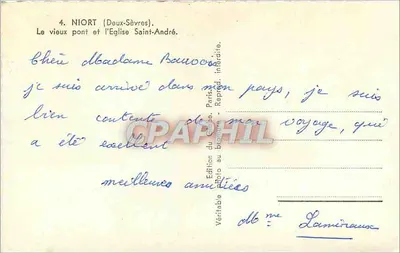 4. NIORT (Deux-Sèvres).
Le vieux pont et l'Eglise Saint-André.
Chère Madame
je suis arrivé dans mon pays, je suis
bien contente de mon voyage, qui
a été exellent
meilleures amitiés
Mme Lamireaux
Véritable Photo au bromure. Reprod. interdite.
Edition du Paris.
CPAPHIL